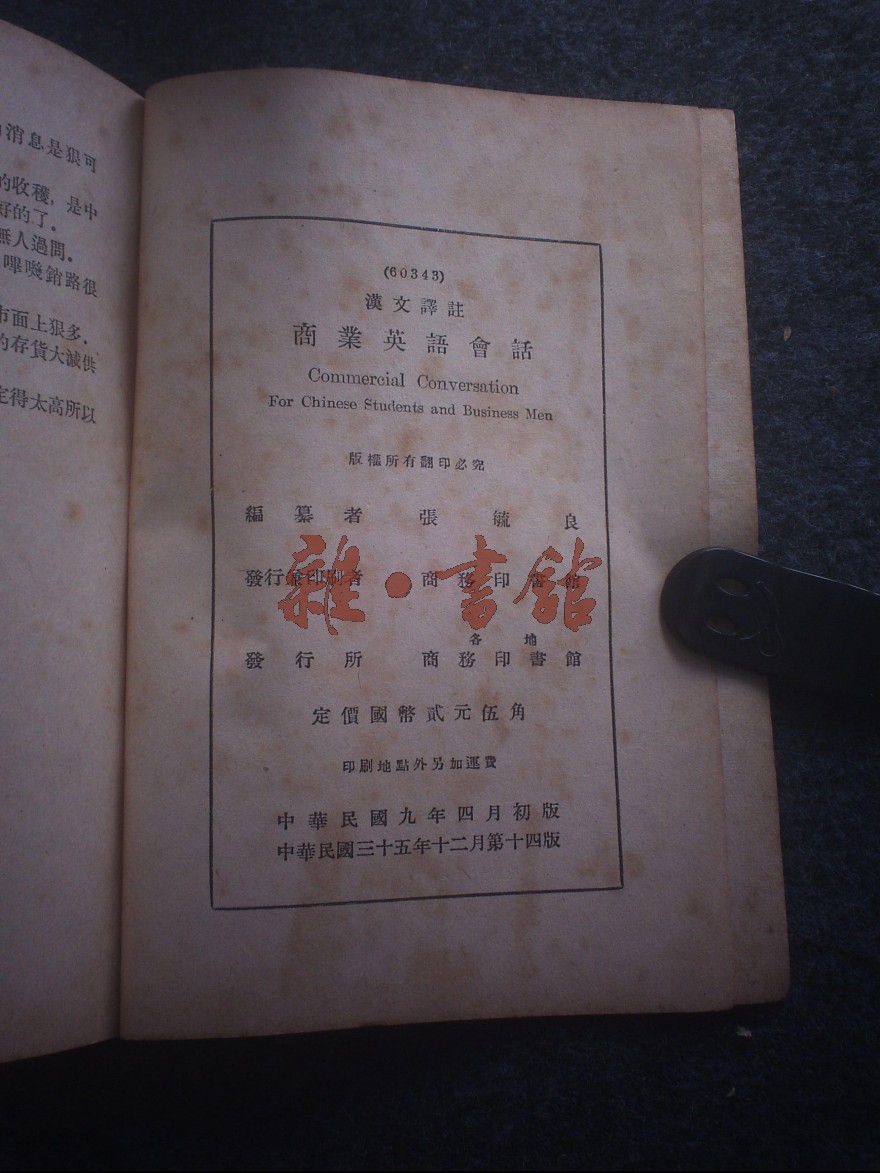 消息是狠可
的收穫，是中
好的了。
無人過問。
嗶嘰銷路很
市面上狠多．
的存貨大減供
定得太高所以
(60343)
漢文譯註
商業英語會話
Commercial Conversation
For Chinese Students and Business Men
版權所有翻印必究
編纂者 張毓良
發行兼印刷者 商務印書館
雜·書館
各地
發行所 商務印書館
定價國幣貳元伍角
印刷地點外另加運費
中華民國九年四月初版
中華民國三十五年十二月第十四版